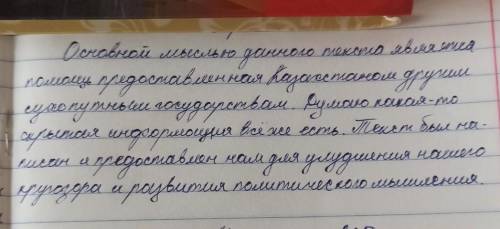 Основной мыслью данного текста является
помощь предоставленная Казахстаном другим
сухопутным государствам. Думаю какая-то
скрытая информация всё же есть. Текст был на-
писан и предоставлен нам для улудшения нашего
кругозора и розвития политического мышления.